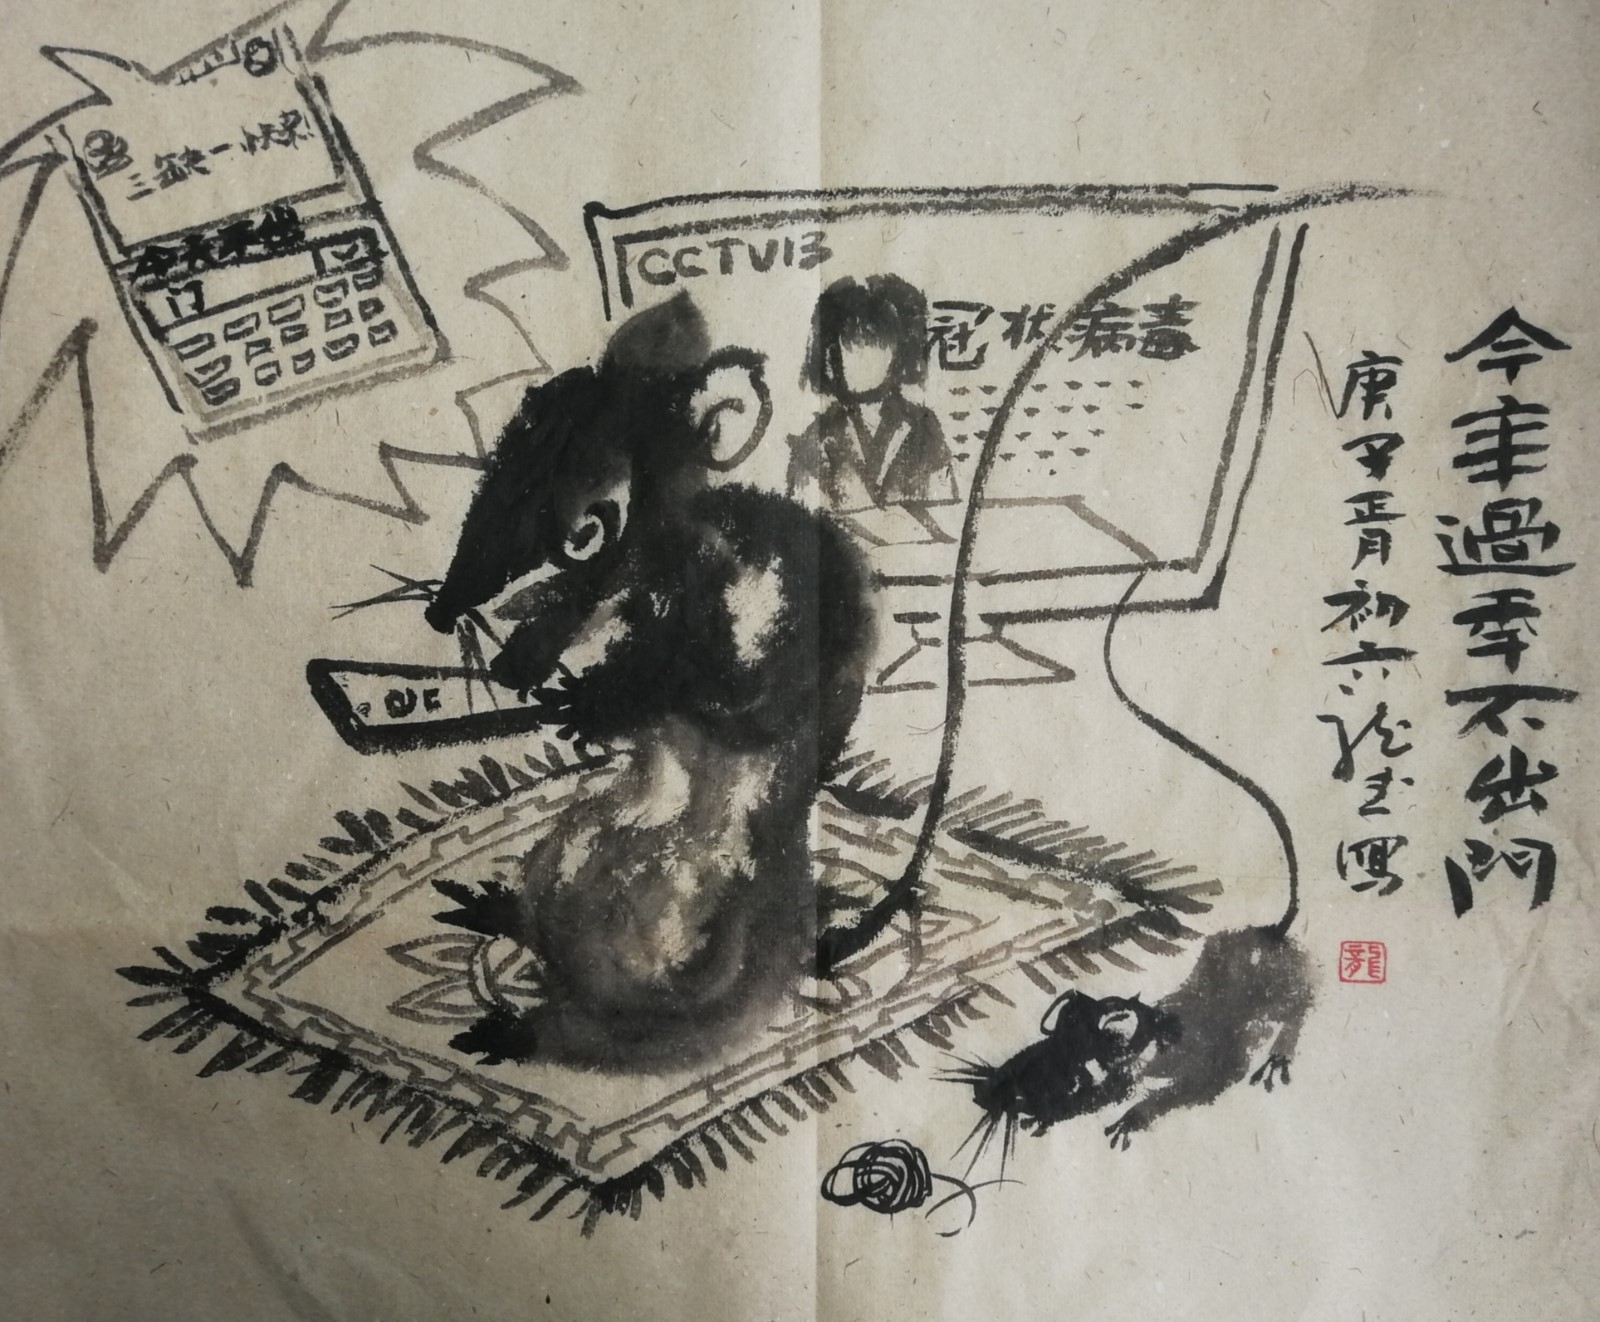 三缺一快来
今天不出
门
CCTV13
冠状病毒
今年過年不出門
庚子肖初六龍玉寫
龍